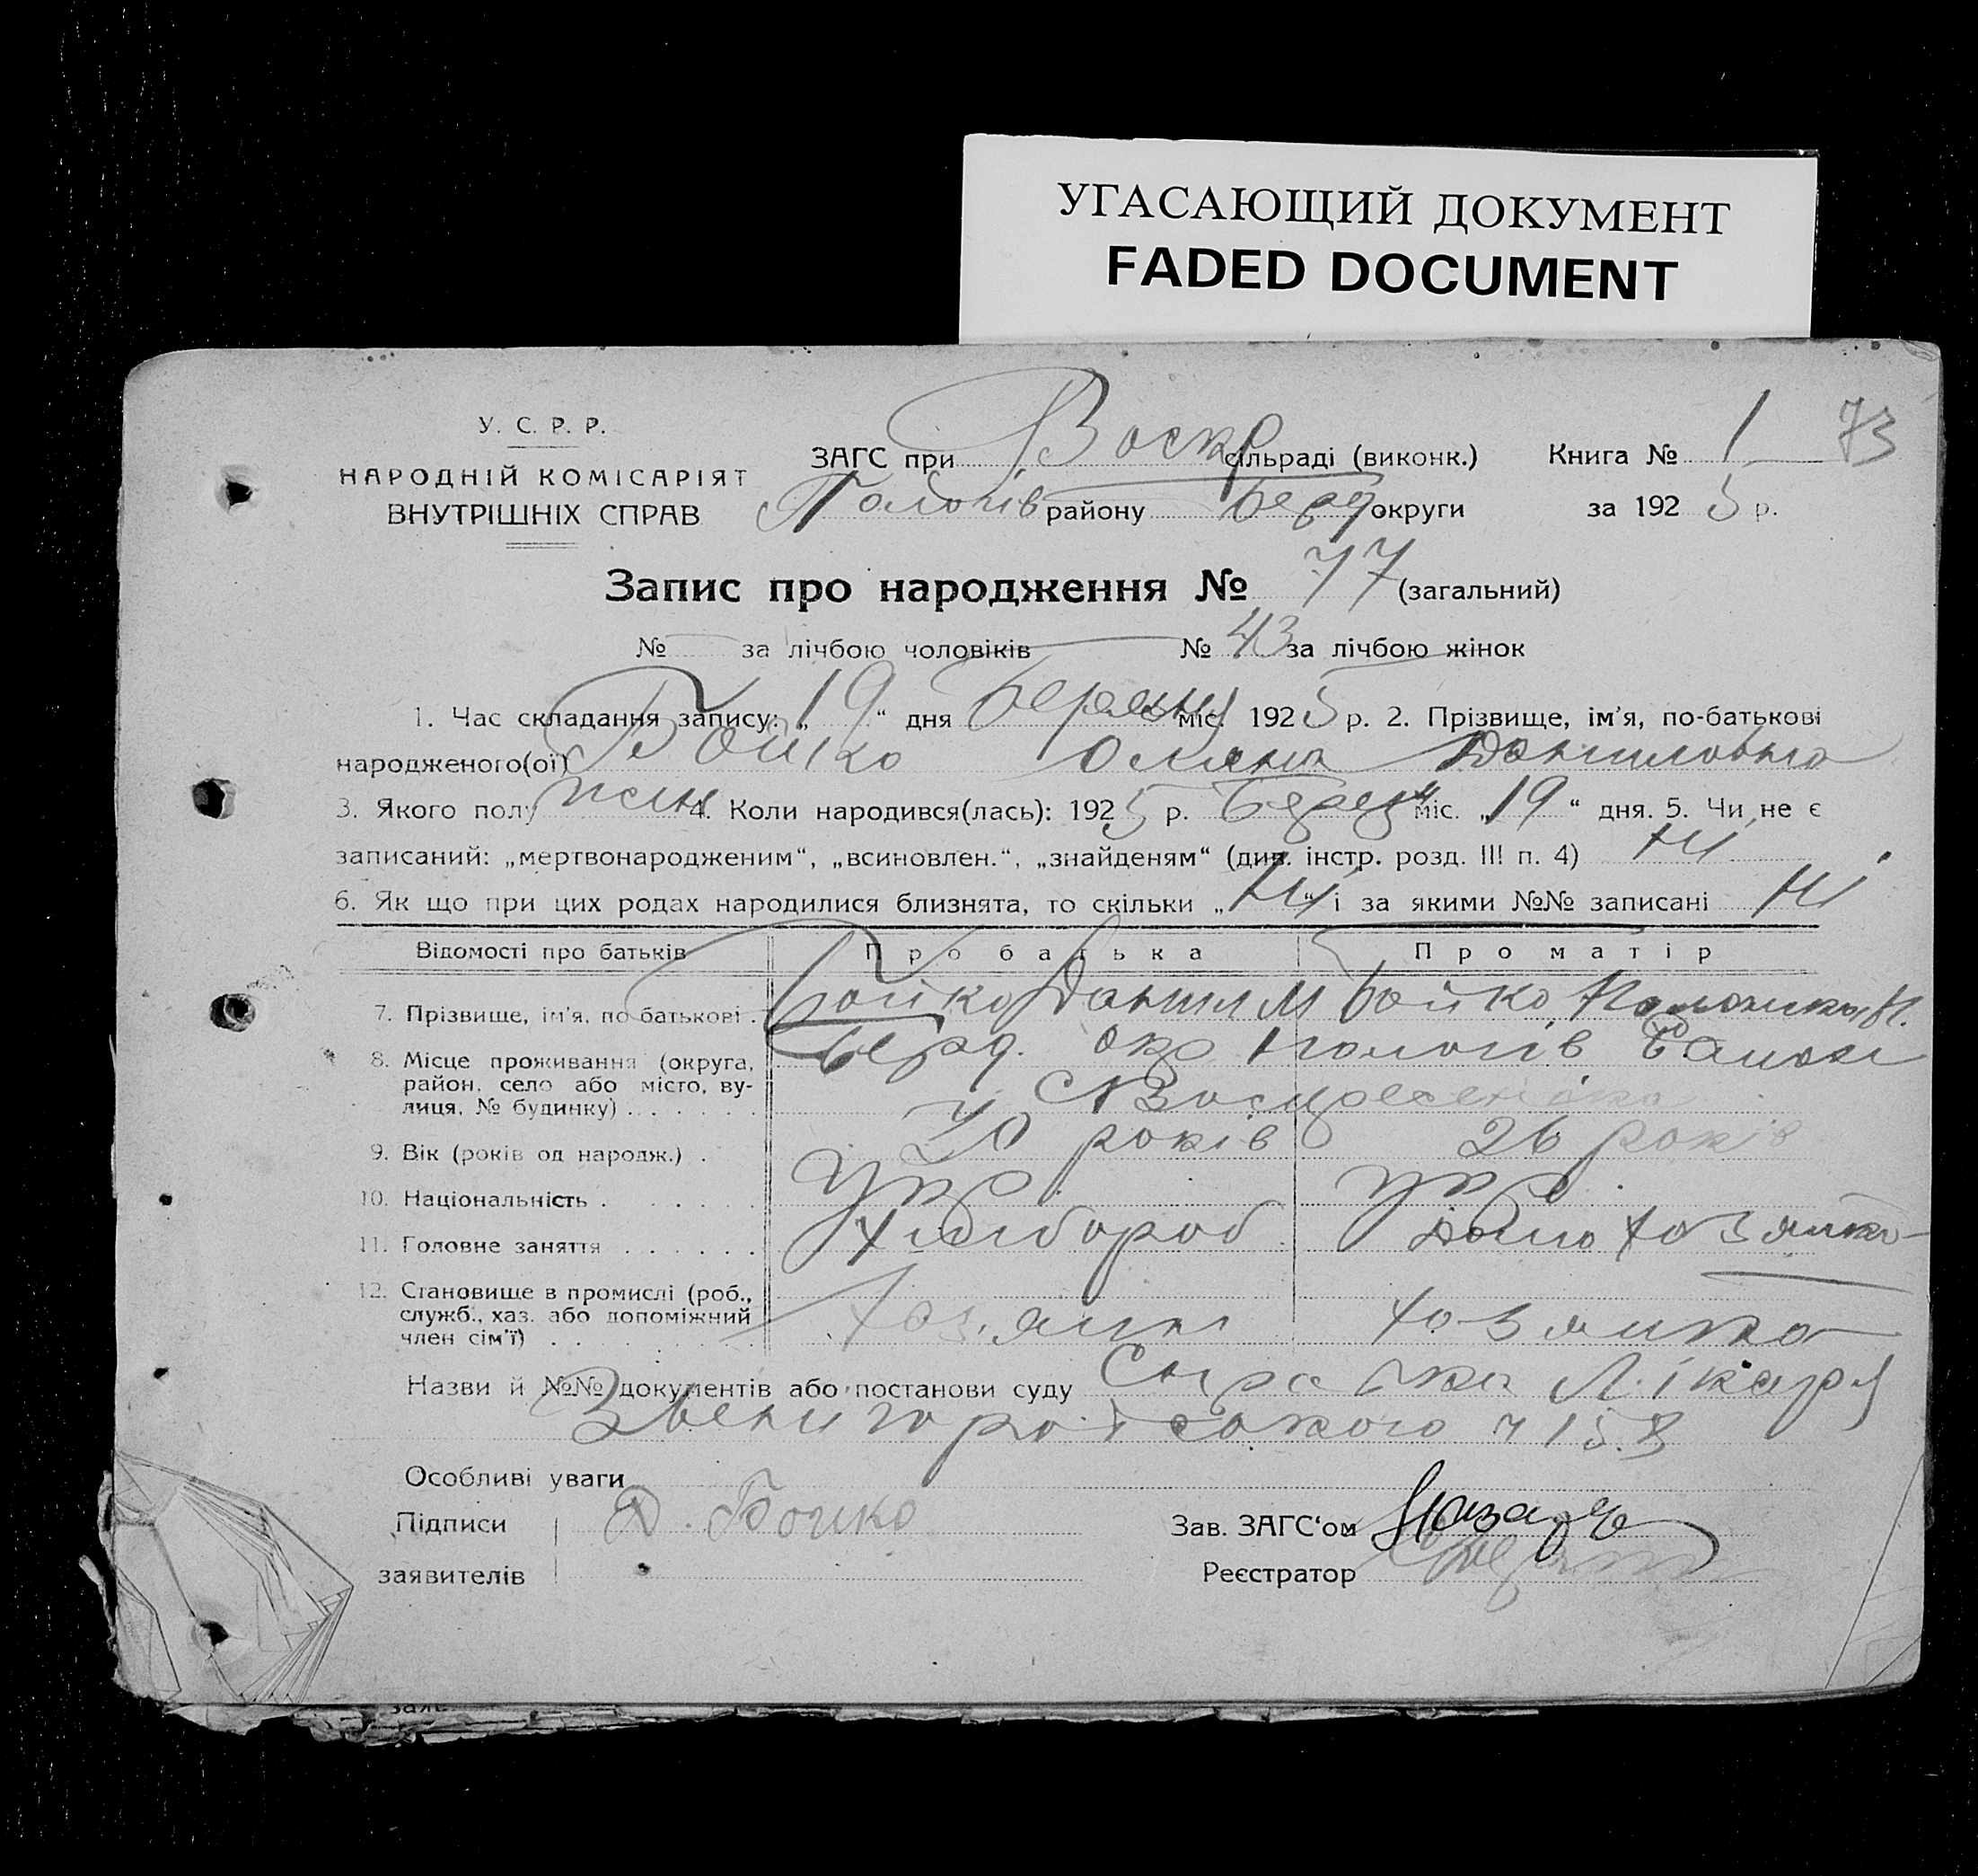 УГАСАЮЩИЙ ДОКУМЕНТ
FADED DOCUMENT
У. С. Р. Р.
НАРОДНІЙ КОМІСАРІЯТ
ВНУТРІШНІХ СПРАВ
ЗАГС при Воскр сільраді (виконк.)
Пологів району Берд округи
Книга № 1 73
за 1925 р.
Запис про народження № 77 (загальний)
№ за лічбою чоловіків № 43 за лічбою жінок
1. Час складання запису: „19“ дня Березня міс. 1925 р. 2. Прізвище, ім'я, по-батькові
народженого(ої) Бойко Оляна Даниловна
3. Якого полу жін 4. Коли народився(лась): 1925 р. Берез міс. „19“ дня. 5. Чи не є
записаний: „мертвонародженим“, „всиновлен.“, „знайденям“ (див. інстр. розд. III п. 4) Ні
6. Як що при цих родах народилися близнята, то скільки „Ні“ і за якими №№ записані Ні
Відомості про батьків Про батька Про матір
7. Прізвище, ім'я, по батькові . Бойко Данило М Бойко
8. Місце проживання (округа, район, село або місто, вулиця, № будинку) . . . . . . Берд. окр Пологів Району
с Воскресенка
9. Вік (років од народж.) . 30 років 26 років
10. Національність . . . . . . Укр. Укр.
11. Головне заняття . . . . . . Хлібороб Домохозяйка
12. Становище в промислі (роб.,
служб., хаз. або допоміжний
член сім'ї) . . . . . . Хозяїн Хозяйка
Назви й №№ документів або постанови суду Справка Лікаря
Звенигородського ч 158
Особливі уваги
Підписи Д. Бойко Зав. ЗАГС'ом
заявителів Реєстратор